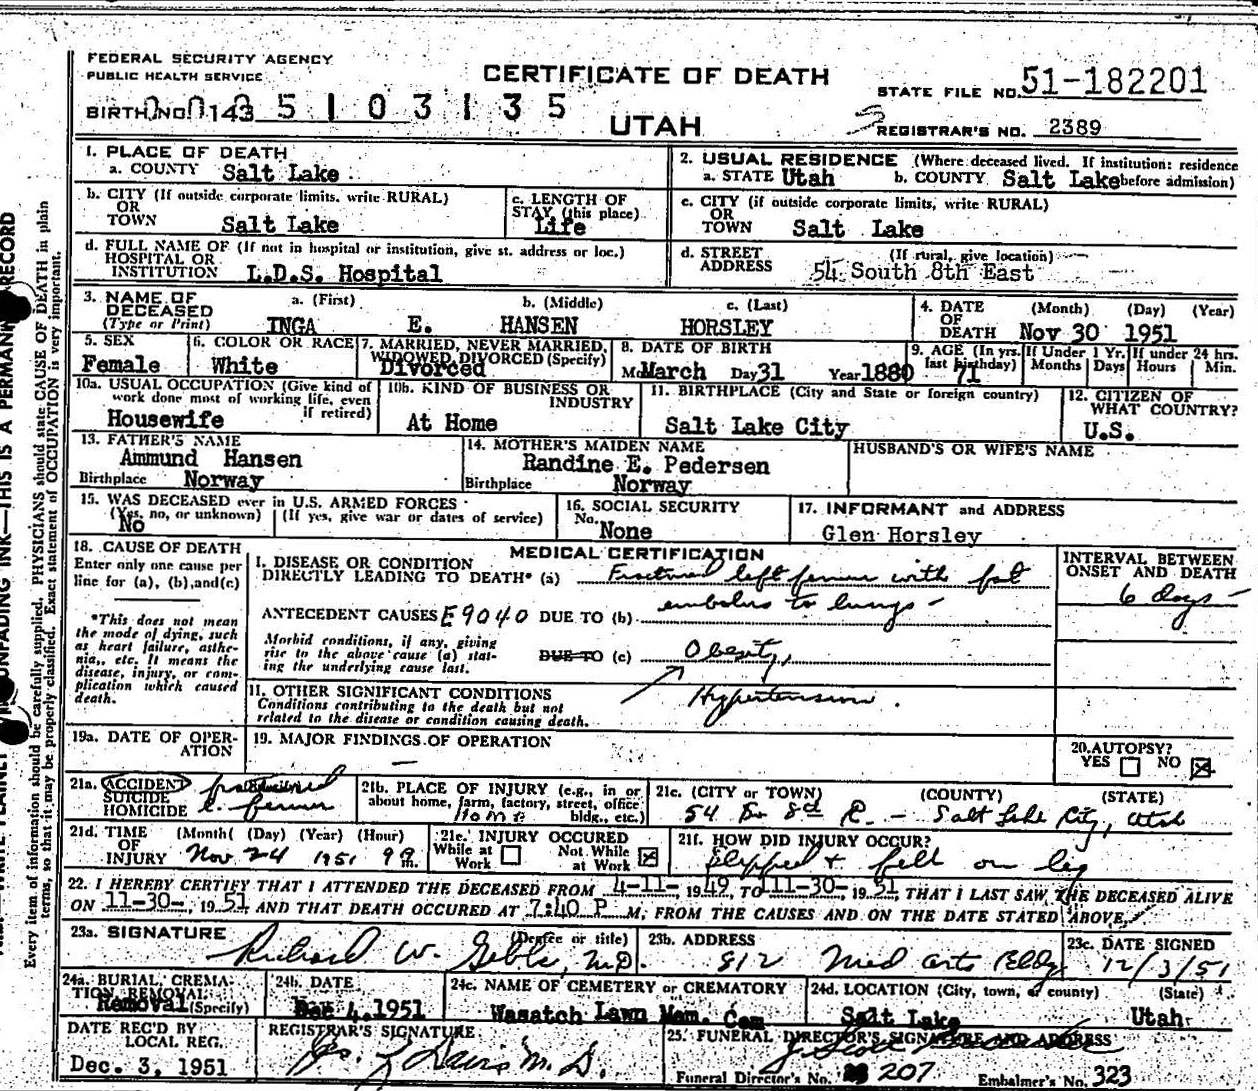 FEDERAL SECURITY AGENCY
PUBLIC HEALTH SERVICE
CERTIFICATE OF DEATH
STATE FILE NO. 51-182201
BIRTH NO. 0143 5103135
UTAH
REGISTRAR'S NO. 2389
1. PLACE OF DEATH
a. COUNTY Salt Lake
2. USUAL RESIDENCE (Where deceased lived. If institution: residence
a. STATE Utah b. COUNTY Salt Lake before admission)
b. CITY (If outside corporate limits, write RURAL)
OR
TOWN Salt Lake
c. LENGTH OF
STAY (this place)
Life
c. CITY (if outside corporate limits, write RURAL)
OR
TOWN Salt Lake
d. FULL NAME OF (If not in hospital or institution, give st. address or loc.)
HOSPITAL OR
INSTITUTION L.D.S. Hospital
d. STREET (If rural, give location)
ADDRESS 54 South 8th East
3. NAME OF DECEASED
(Type or Print)
a. (First) b. (Middle) c. (Last)
INGA E. HANSEN HORSLEY
4. DATE OF DEATH (Month) (Day) (Year)
Nov 30 1951
5. SEX
Female
6. COLOR OR RACE
White
7. MARRIED, NEVER MARRIED,
WIDOWED, DIVORCED (Specify)
Divorced
8. DATE OF BIRTH
Mo March Day 31 Year 1880
9. AGE (In yrs. last birthday)
71
If Under 1 Yr.
Months Days
If under 24 hrs.
Hours Min.
10a. USUAL OCCUPATION (Give kind of
work done most of working life, even
if retired)
Housewife
10b. KIND OF BUSINESS OR
INDUSTRY
At Home
11. BIRTHPLACE (City and State or foreign country)
Salt Lake City
12. CITIZEN OF
WHAT COUNTRY?
U.S.
13. FATHER'S NAME
Ammund Hansen
Birthplace Norway
14. MOTHER'S MAIDEN NAME
Randine E. Pedersen
Birthplace Norway
HUSBAND'S OR WIFE'S NAME
15. WAS DECEASED ever in U.S. ARMED FORCES
(Yes, no, or unknown) (If yes, give war or dates of service)
No
16. SOCIAL SECURITY
No. None
17. INFORMANT and ADDRESS
Glen Horsley
18. CAUSE OF DEATH
Enter only one cause per
line for (a), (b), and (c)
*This does not mean
the mode of dying, such
as heart failure, asthe-
nia, etc. It means the
disease, injury, or com-
plication which caused
death.
MEDICAL CERTIFICATION
I. DISEASE OR CONDITION
DIRECTLY LEADING TO DEATH* (a) Fractured left femur with fat
embolus to lungs -
ANTECEDENT CAUSES E9040 DUE TO (b)
Morbid conditions, if any, giving
rise to the above cause (a) stat-
ing the underlying cause last.
DUE TO (c) Obesity,
11. OTHER SIGNIFICANT CONDITIONS
Conditions contributing to the death but not
related to the disease or condition causing death.
Hypertension.
INTERVAL BETWEEN
ONSET AND DEATH
6 days -
19a. DATE OF OPER-
ATION
19. MAJOR FINDINGS OF OPERATION
—
20. AUTOPSY?
YES NO
21a. ACCIDENT
SUICIDE
HOMICIDE
fractured
L. femur
21b. PLACE OF INJURY (e.g., in or
about home, farm, factory, street, office
bldg., etc.)
Home
21c. (CITY OR TOWN) (COUNTY) (STATE)
54 So 8th E. - Salt Lake City, Utah
21d. TIME OF INJURY (Month) (Day) (Year) (Hour)
Nov 24 1951 9 m.
21e. INJURY OCCURED
While at Work Not While at Work
21f. HOW DID INJURY OCCUR?
Slipped + fell on leg
22. I HEREBY CERTIFY THAT I ATTENDED THE DECEASED FROM 4-11-, 1949, TO 11-30-, 1951, THAT I LAST SAW THE DECEASED ALIVE
ON 11-30-, 1951 AND THAT DEATH OCCURED AT 7:40 P M, FROM THE CAUSES AND ON THE DATE STATED ABOVE.
23a. SIGNATURE (Degree or title)
Richard W. M.D.
23b. ADDRESS
812 Med Arts Bldg
23c. DATE SIGNED
12/3/51
24a. BURIAL, CREMA-
TION, REMOVAL (Specify)
Removal
24b. DATE
Dec 4, 1951
24c. NAME OF CEMETERY or CREMATORY
Wasatch Lawn Mem. Cem
24d. LOCATION (City, town, or county) (State)
Salt Lake Utah
DATE REC'D BY
LOCAL REG.
Dec. 3, 1951
REGISTRAR'S SIGNATURE
Davis M.D.
25. FUNERAL DIRECTOR'S SIGNATURE AND ADDRESS
Funeral Director's No. 207 Embalmer's No. 323
UNFADING INK—THIS IS A PERMANENT RECORD
Every item of information should be carefully supplied. PHYSICIANS should state CAUSE OF DEATH in plain
terms, so that it may be properly classified. Exact statement of OCCUPATION is very important.